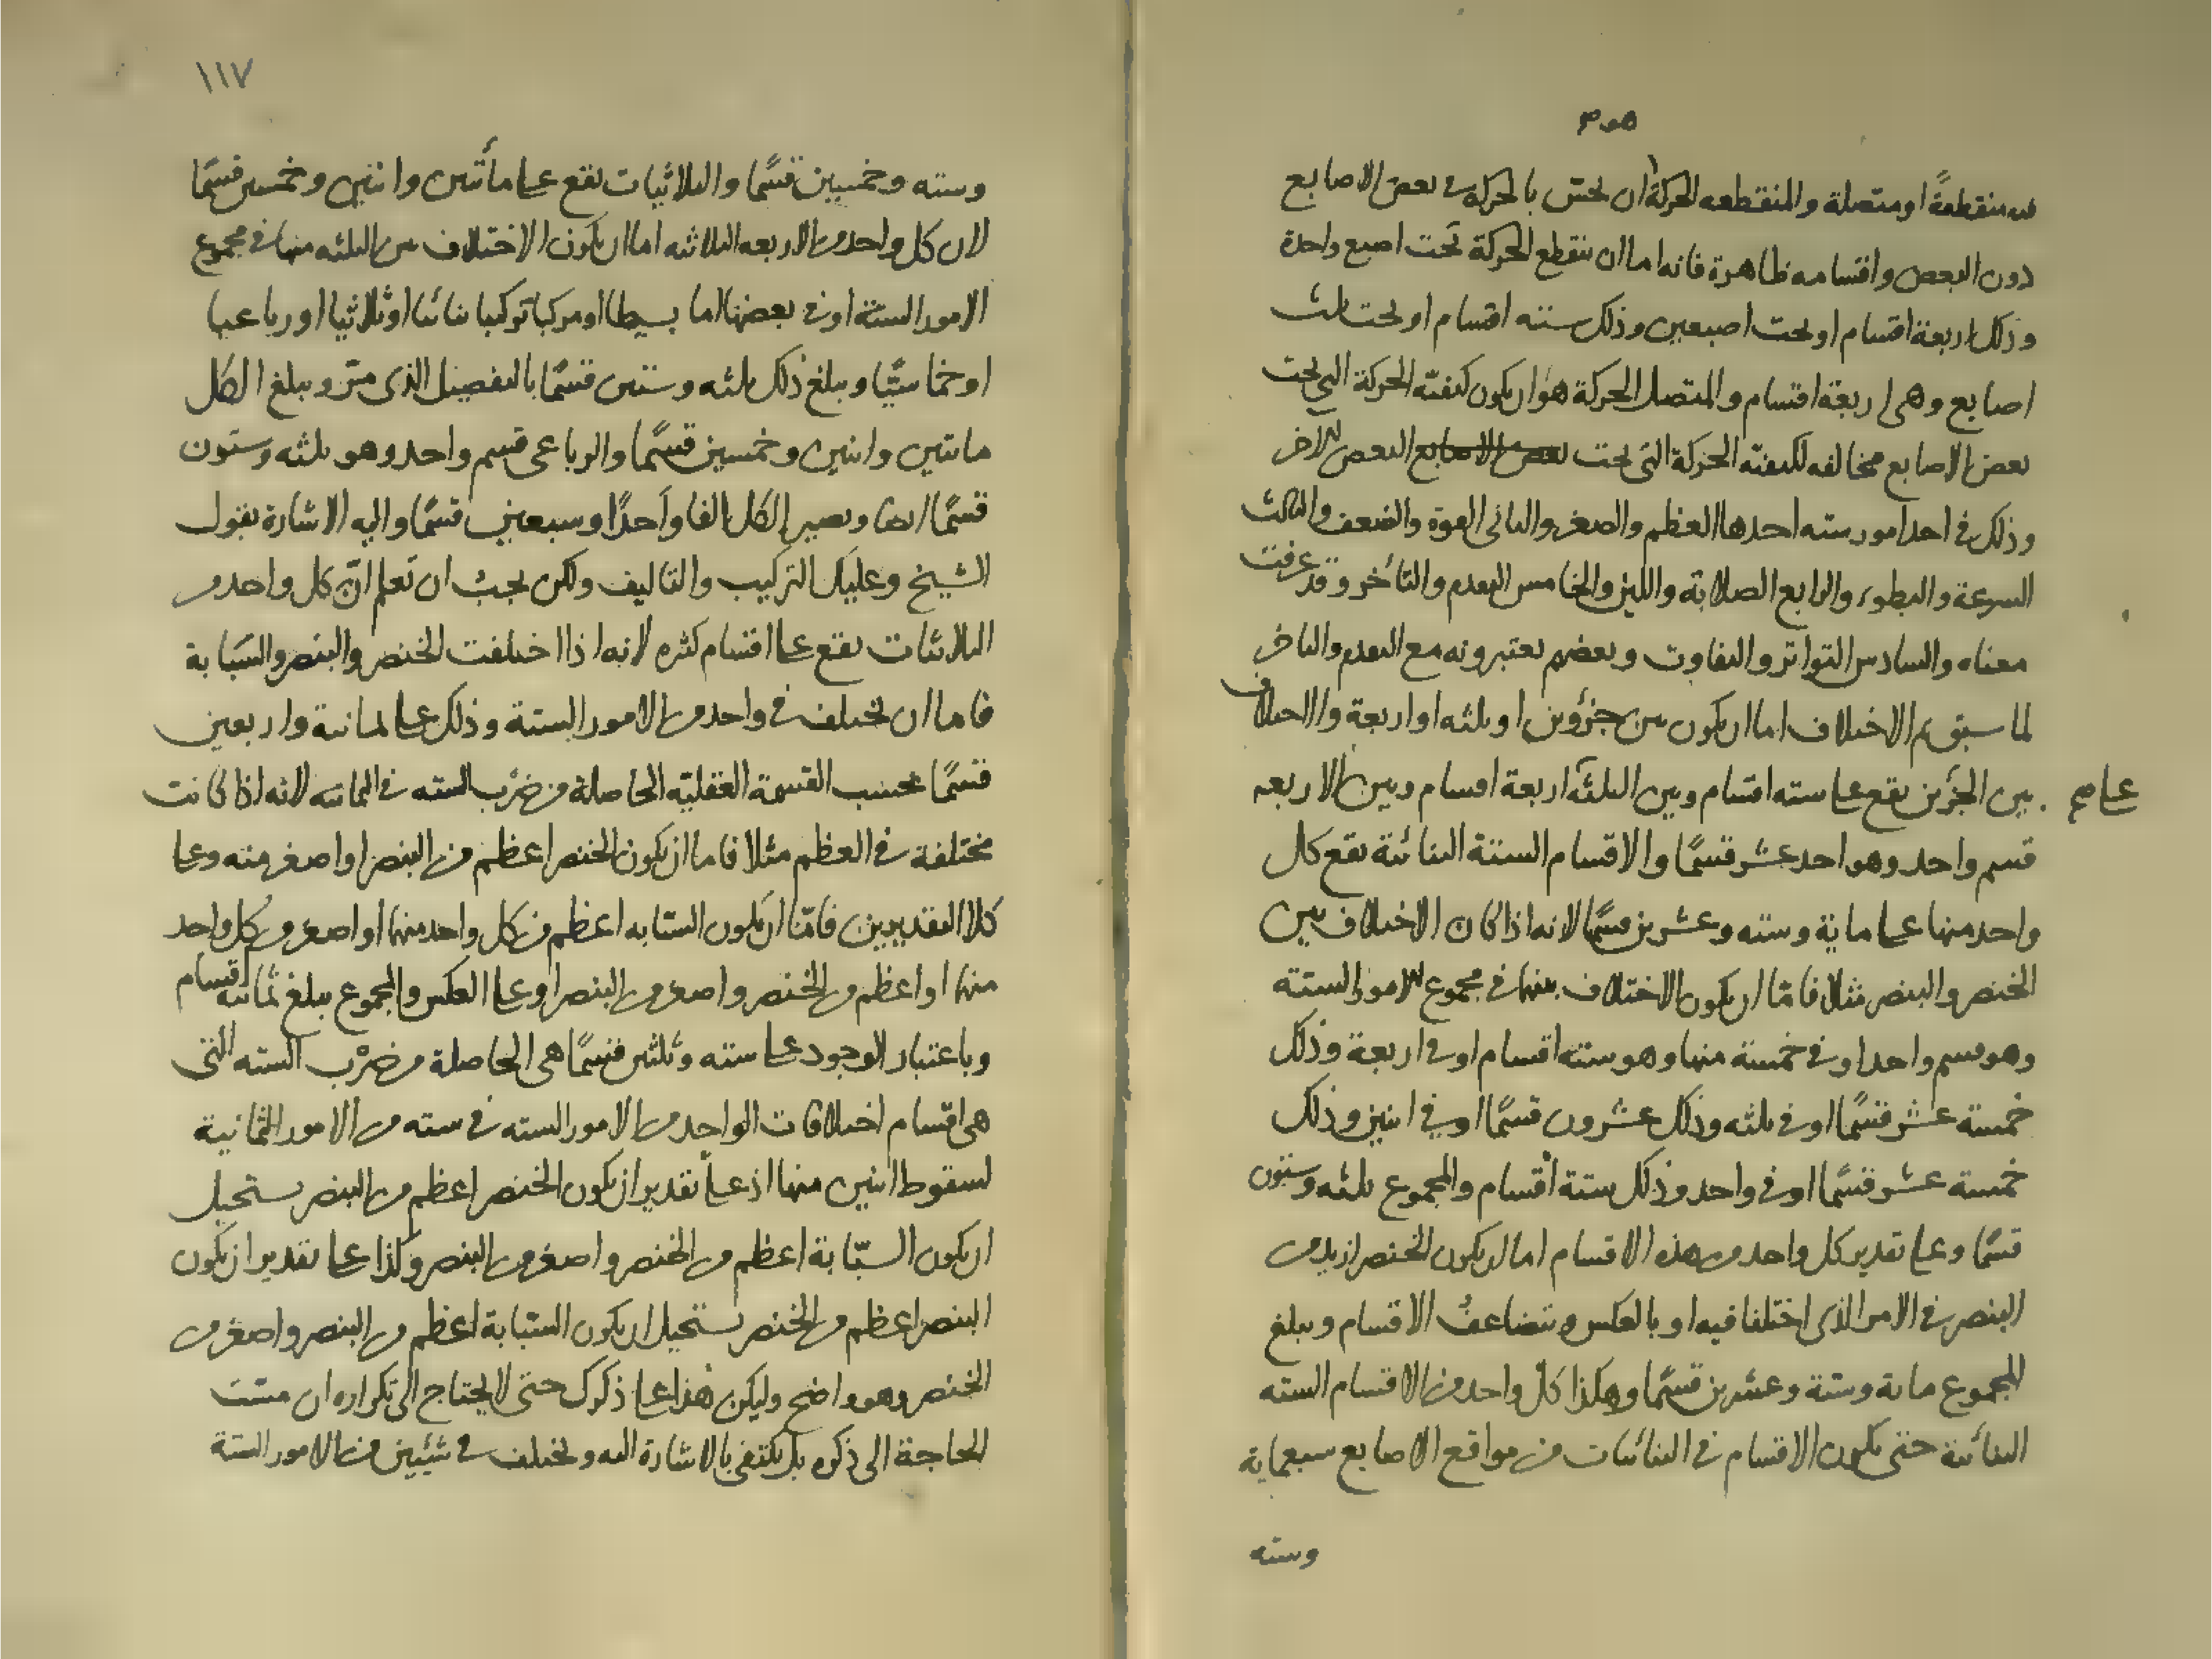 هو صح
فيه منقطعةً او متصلة والمنقطعه الحركة ان يحسّ بالحركه فى بعض الاصابع
دون البعض واقسامه ظاهرة فانه اما ان ينقطع الحركة تحت اصبع واحدة
وذلك اربعة اقسام او تحت اصبعين وذلك سته اقسام او تحت ثلث
اصابع وهى اربعة اقسام والمتصل الحركة هو ان يكون كيفيّة الحركة التى تحت
بعض الاصابع مخالفه لكيفيّه الحركة التى تحت بعض الاصابع البعض الاخر
وذلك فى احد امور سته احدها العظم والصغر والثانى القوة والضعف والثالث
السرعة والبطوء والرابع الصلابة واللين والخامس التقدم والتأخر وقد عرفت
معناه والسادس التواتر والتفاوت وبعضهم يعتبرونه مع التقدم والتاخر
لما سبق ثم الاختلاف اما ان يكون بين جزؤين او ثلثه او اربعة والاختلاف
بين الجزئين يقع على سته اقسام وبين الثلثة اربعة اقسام وبين الاربعه
على صح
قسم واحد وهو احد عشر قسمًا والاقسام الستة الثنائية يقع كل
واحد منها على ماية وسته وعشرين قسمًا لانه اذا كان الاختلاف بين
الخنصر والبنصر مثلا فامّا ان يكون الاختلاف بينهما فى مجموع الامور الستة
وهو قسم واحد او فى خمسة منها وهو سته اقسام او فى اربعة وذلك
خمسة عشر قسمًا او فى ثلثه وذلك عشرون قسمًا او فى اثنين وذلك
خمسة عشر قسمًا او فى واحد وذلك ستة اقسام والمجموع ثلثه وستون
قسمًا وعلى تقدير كل واحد من هذه الاقسام اما ان يكون الخنصر ازيد من
البنصر فى الامر الذى اختلفا فيه او بالعكس ويتضاعفُ الاقسام ويبلغ
المجموع ماية وستة وعشرين قسمًا وهكذا كل واحد من الاقسام السته
الثنائية حتى يكون الاقسام فى الثنائيات من مواقع الاصابع سبعماية
وسته
١١٧
وسته وخمسين قسمًا والثلاثيات يقع على مأتين واثنين وخمسين قسمًا
لان كل واحد من الاربعه الثلاثيه اما ان يكون الاختلاف بين الثلثه منها فى مجموع
الامور الستة او فى بعضها اما بسيطا او مركبا تركيبا ثنائيا او ثلاثيا او رباعيا
او خماسيًّا ويبلغ ذلك ثلثه وستين قسمًا بالتفصيل الذى مرّ ويبلغ الكل
مايتين واثنين وخمسين قسمًا والرباعى قسم واحد وهو ثلثه وستون
قسمًا ايضا ويصير الكل الفا واحدًا وسبعين قسمًا واليه الاشارة بقول
الشيخ وعليك التركيب والتاليف ولكن يجب ان تعلم انّ كل واحد من
الثلاثيات يقع على اقسام كثيره لانه اذا اختلفت الخنصر والبنصر والسبّابة
فاما ان تختلف فى واحد من الامور الستة وذلك على ثمانية واربعين
قسمًا بحسب القسمة العقليّه الحاصلة من ضرْب السته فى الثمانيه لانه اذا كانت
مختلفة فى العظم مثلا فاما ان يكون الخنصر اعظم من البنصر او اصغر منه وعلى
كلا التقديرين فامّا ان يكون السبّابه اعظم من كل واحد منهما او اصغر من كل واحد
منهما او اعظم من الخنصر واصغر من البنصر او على العكس والمجموع يبلغ ثمانيه اقسام
وباعتبار الوجود على سته وثلثين قسمًا هى الحاصلة من ضرْب السته التى
هى اقسام اختلافات الواحد من الامور السته فى سته من الامور الثمانية
لسقوط اثنين منها اذ على تقدير ان يكون الخنصر اعظم من البنصر يستحيل
ان يكون السبّابة اعظم من الخنصر واصغر من البنصر وكذا على تقدير ان يكون
البنصر اعظم من الخنصر يستحيل ان يكون السبّابة اعظم من البنصر واصغر من
الخنصر وهو واضح وليكن هذا على ذكرك حتى لا يحتاج الى تكراره ان مسّت
الحاجة الى ذكره بل يكتفى بالاشارة اليه ويختلف فى شيئين من الامور الستة